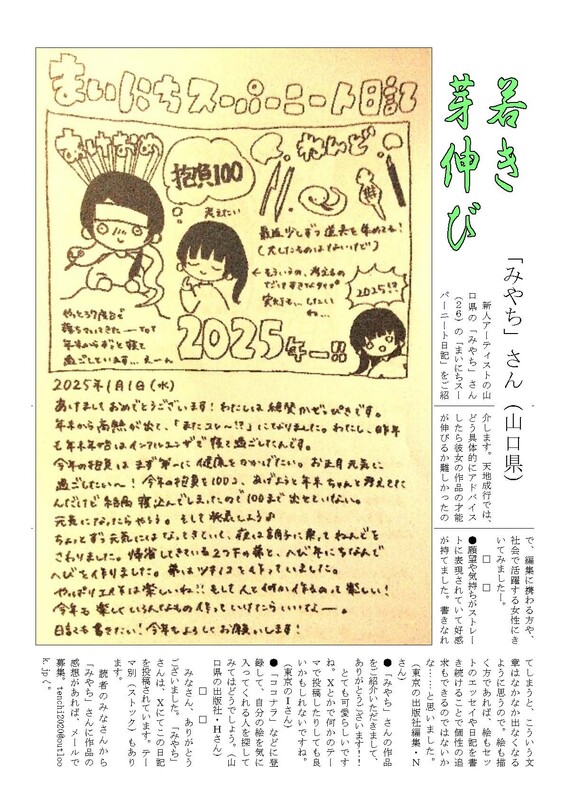 若き
芽伸び
「みやち」さん（山口県）
まいにちスーパーニート日記
あけおめ
抱負100
考えたい
ねんど
最近少しずつ道具を集めてる!
(大したものはないけど)
←もういうの、考えるの
だけすきなタイプ
実行も…したい
ね…
2025!?
やっとう7度台で
落ちついてきた―って
年末からずっと寝て
過ごしています…えーん
2025年―!!
2025年1月1日(水)
あけましておめでとうございます!わたしは絶賛かぜっぴきです。
年末から高熱が出て、「またコレ―!?」になりました。わたし、昨年
も年末年始はインフルエンザで寝て過ごしたんです。
今年の抱負はまず第一に健康をかかげたい。お正月元気に
過ごしたい〜!今年の抱負を100コ、あげようと年末ちゃんと考えてた
んだけど結局寝込んでしまったので100まで出せていない。
元気になったらやろう。そして発表しよう♪
ちょっとずつ元気にはなってきていて、夜は調子に乗ってねんどを
さわりました。帰省してきている2つ下の弟と、へび年にちなんで
へびを作りました。弟はツチノコを作っていました。
やっぱり工作は楽しいね!!そしてんと何か作るのって楽しい!
今年も楽しくいろんなもの作っていけたらいいなー。
日記も書きたい!今年もよろしくお願いします!
新人アーティストの山
口県の「みやち」さん
（２６）の「まいにちスー
パーニート日記」をご紹
介します。天地成行では、
どう具体的にアドバイス
したら彼女の作品の才能
が伸びるか難しかったの
で、編集に携わる方や、
社会で活躍する女性にき
いてみました―。
□　□
●願望や気持ちがストレー
トに表現されていて好感
が持てました。書きなれ
てしまうと、こういう文
章はなかなか出なくなる
ように思うので。絵も描
く方であれば、絵もセッ
トのエッセイや日記を書
き続けることで個性の追
求もできるのではないか
な……と思いました。
（東京の出版社編集・N
さん）
●「みやち」さんの作品
をご紹介いただきまして、
ありがとうございます!!
とても可愛らしいです
ね。Xとかで何かのテー
マで投稿したりしても良
いかもしれないですね。
（東京のIさん）
●「ココナラ」などに登
録して、自分の絵を気に
入ってくれる人を探して
みてはどうでしょう。（山
口県の出版社・Hさん）
□　□
みなさん、ありがとう
ございました。「みやち」
さんは、Xにてこの日記
を投稿されています。テー
マ別（ストック）もあり
ます。
読者のみなさんから
「みやち」さんに作品の
感想があれば、メールで
募集。tenchi2020@outloo
k.jpへ。